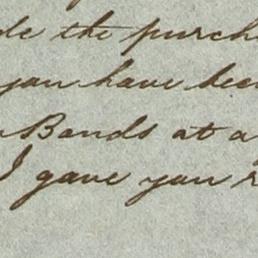 de the purch
you have bee
Bonds at a
I gave you